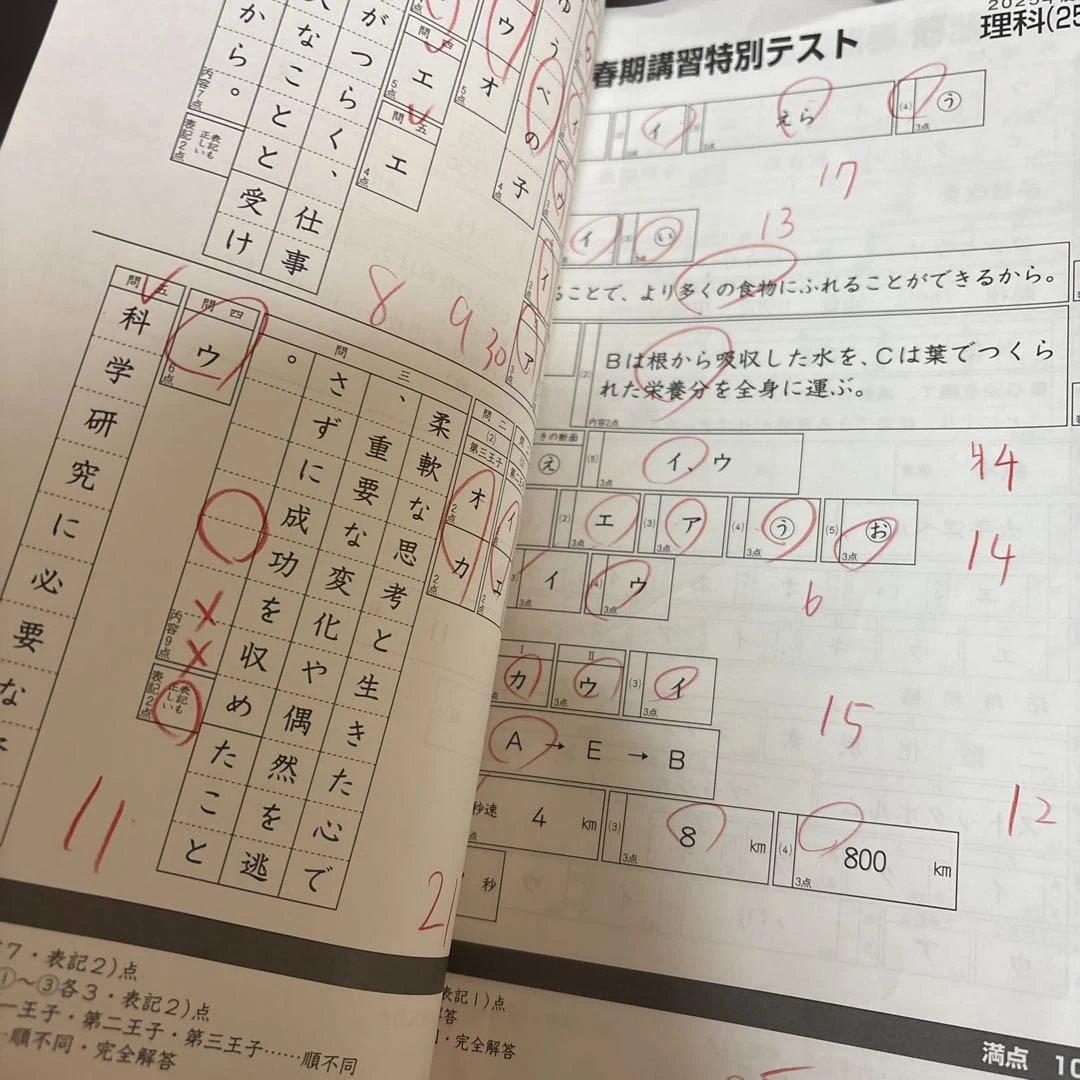 理科
春期講習特別テスト
イ
えら
(4)
う
3点
17
13
イ
(3)
い
3点
ことで、より多くの食物にふれることができるから。
(2)
Bは根から吸収した水を、Cは葉でつくら
れた栄養分を全身に運ぶ。
内容2点
きの断面
え
(5)
イ、ウ
3点
44
(2)
エ
3点
(3)
ア
3点
(4)
う
3点
(5)
お
3点
14
イ
3点
(4)
ウ
3点
6
I
カ
3点
II
ウ
3点
(3)
イ
3点
15
A→E→B
秒速 4 km
(3)
8 km
3点
(4)
800 km
3点
12
秒
表記1)点
・完全解答
満点
から。
大なことと受け
がつらく、仕事
内容7点
表記も正しい
表記2点
問四
エ
5点
問五
エ
4点
ウ
オ
5点
ゆうべの子
4点
イ
ウ
イ
ア
3点
8
9
30
問二
(2)
第三王子
オ
2点
カ
2点
イ
エ
2点
問三
柔軟な思考と生きた心で
、重要な変化や偶然を逃
さずに成功を収めたこと
。
内容9点
表記も正しい
表記2点
問四
ウ
6点
問五
科学研究に必要な
11
21
7・表記2)点
①～③各3・表記2)点
一王子・第二王子・第三王子……順不同
順不同・完全解答